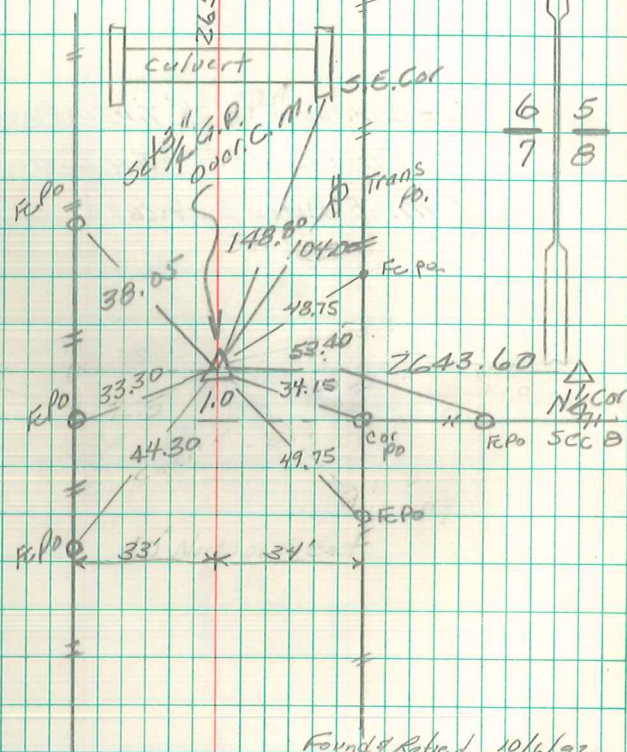 culvert
S.E. Cor
6 5
7 8
Set 3/4" G.P.
over C. M.
Trans
Po.
Fc Po
148.80
104.00
Fc po.
38.05
48.75
53.40
2643.60
33.30
34.15
N 1/4 Cor
Sec 8
Fc Po
1.0
Cor
po
Fc Po
44.30
49.75
Fc Po
Fc Po
33'
34'
Found & Retied 10/6/92